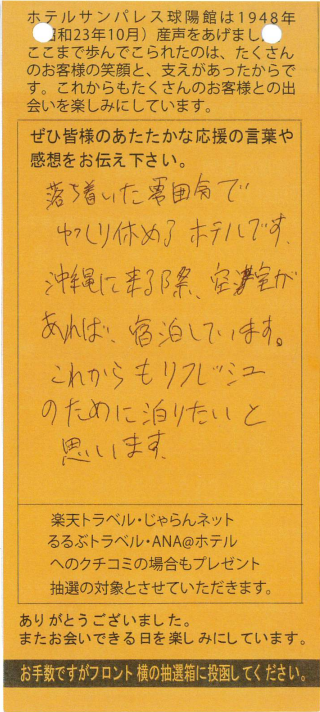 ホテルサンパレス球陽館は1948年
昭和23年10月）産声をあげまし
ここまで歩んでこられたのは、たくさん
のお客様の笑顔と、支えがあったからで
す。これからもたくさんのお客様との出
会いを楽しみにしています。
ぜひ皆様のあたたかな応援の言葉や
感想をお伝え下さい。
落ち着いた雰囲気で
ゆっくり休めるホテルです。
沖縄に来る際、空室が
あれば、宿泊しています。
これからもリフレッシュ
のために泊りたいと
思います。
楽天トラベル・じゃらんネット
るるぶトラベル・ANA@ホテル
へのクチコミの場合もプレゼント
抽選の対象とさせていただきます。
ありがとうございました。
またお会いできる日を楽しみにしています。
お手数ですがフロント横の抽選箱に投函してください。